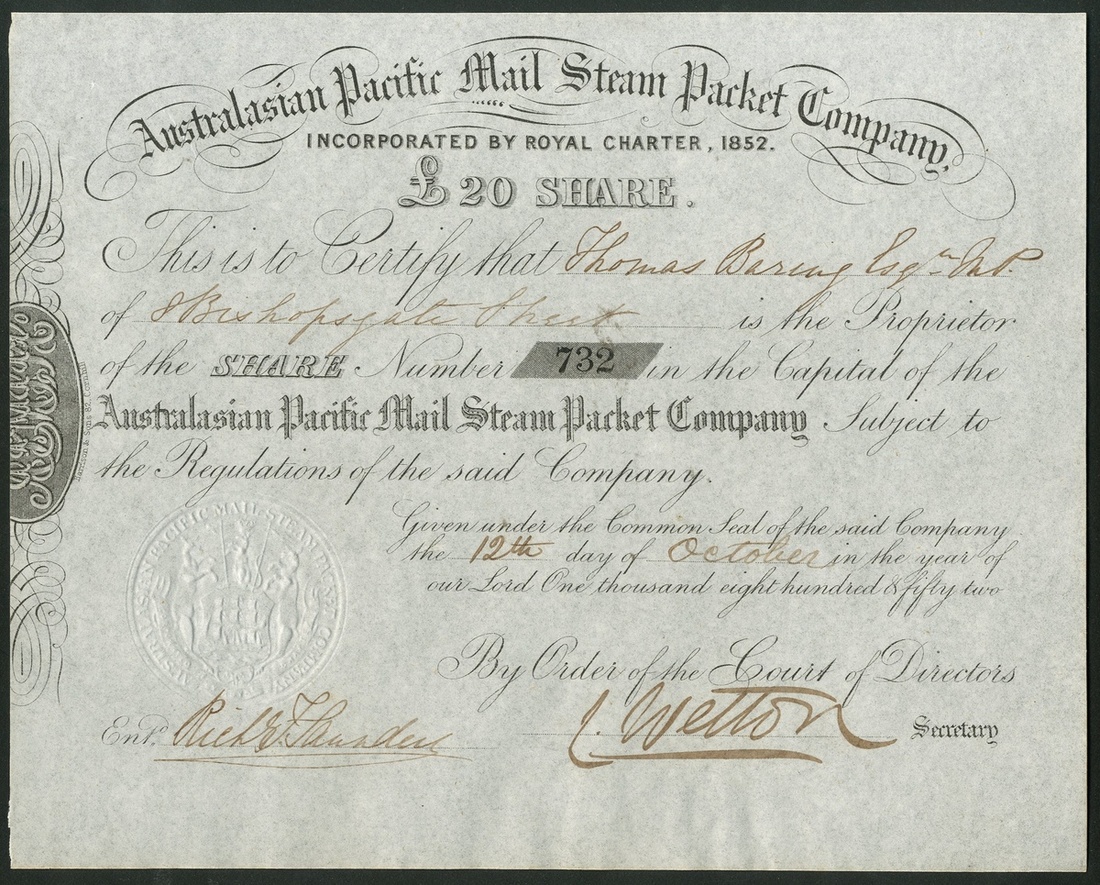 Australasian Pacific Mail Steam Packet Company,
INCORPORATED BY ROYAL CHARTER, 1852.
£20 SHARE.
This is to Certify that Thomas Baring Esqre M.P.
of 8 Bishopsgate Street is the Proprietor
of the SHARE Number 732 in the Capital of the
Australasian Pacific Mail Steam Packet Company Subject to
the Regulations of the said Company.
Given under the Common Seal of the said Company
the 12th day of October in the year of
our Lord One thousand eight hundred & fifty two
By Order of the Court of Directors
Entd. Richd J. Saunders
Wetton Secretary
AUSTRALASIAN PACIFIC MAIL STEAM PACKET COMPANY